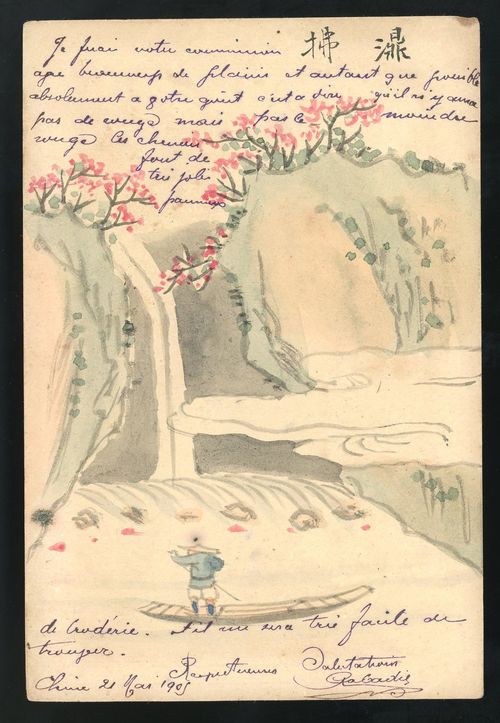 Je ferai votre commission 拂 瀑
avec beaucoup de plaisir et autant que possible
absolument a votre gout c'est a dire qu'il n'y aura
pas de rouge mais pas le moindre
rouge les chinois
font de
très jolis
panneaux
de broderie. Il me sera très facile de
trouver.
Respectueuses Salutations
Chine 21 Mai 1905